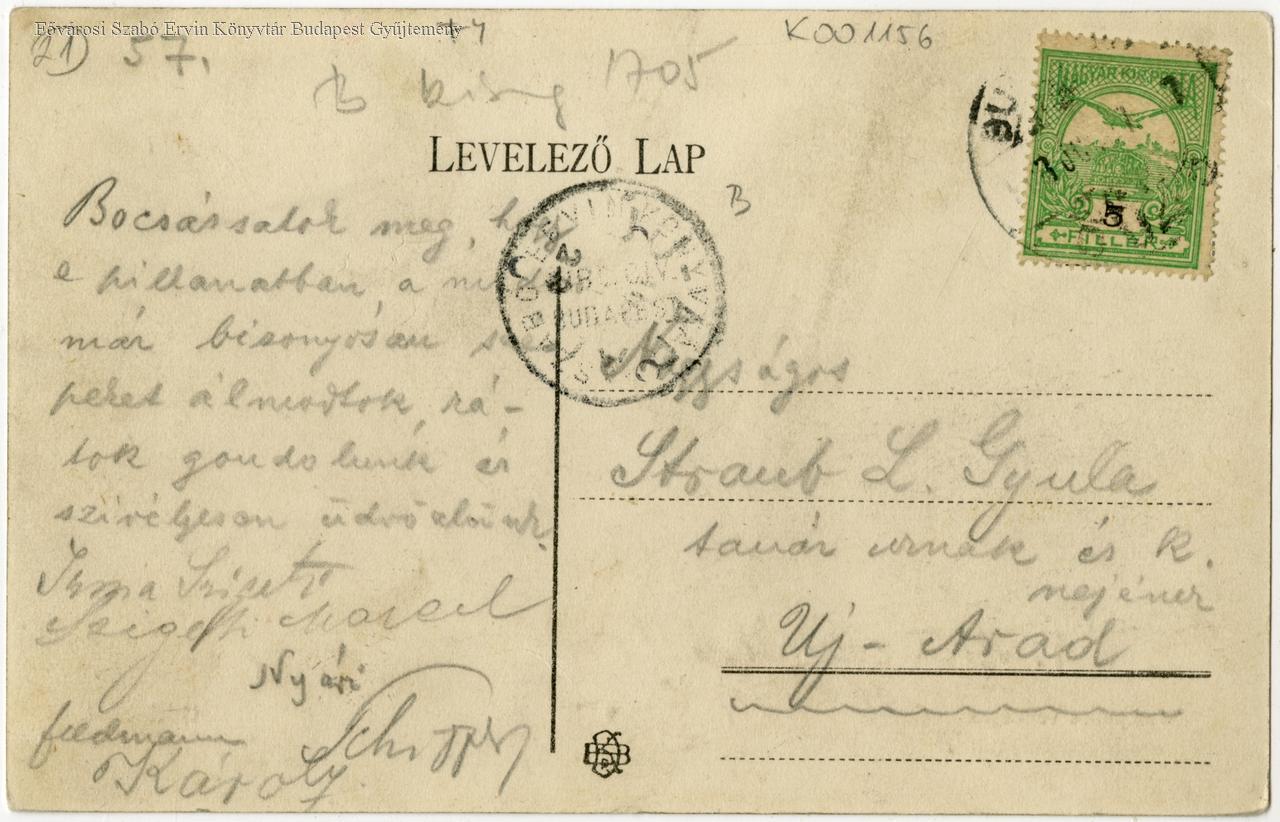 Fővárosi Szabó Ervin Könyvtár Budapest Gyűjtemény
21) 57.
K001156
B 1705
LEVELEZŐ LAP
B
MAGYAR KIR. POSTA
5
FILLÉR
Bocsássatok meg, hogy
e pillanatban, a midőn
már bizonyosan sze-
peket álmodtok, rá-
tok gondolunk és
szivélyesen üdvözlünk.
Irma Szigeti
Szigeti Marcel
Nyári
Feldmann
Károly
Nagyságos
Straub L. Gyula
tanár urnak és k.
nejének
Uj-Arad